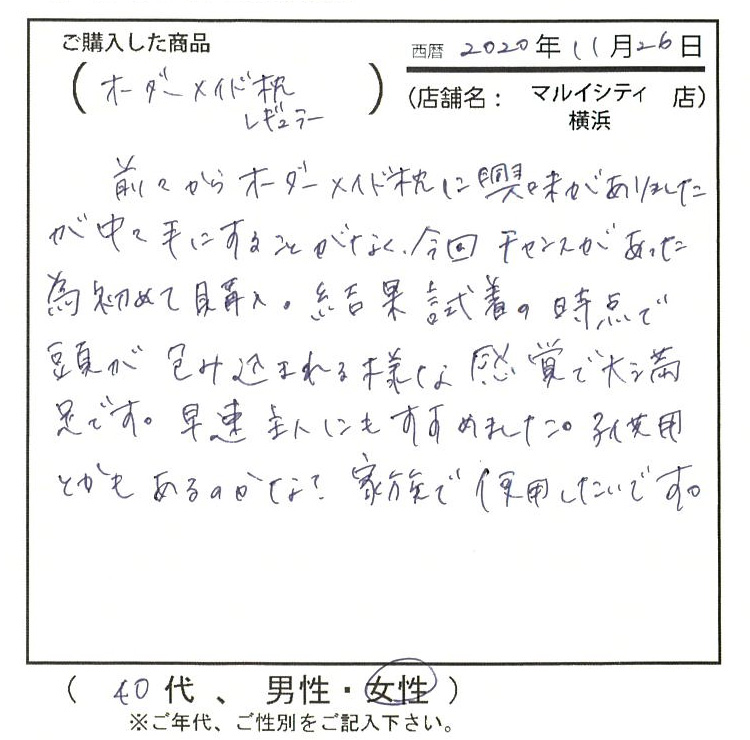 ご購入した商品
西暦 2020年 11月26日
(オーダーメイド枕
レギュラー)
(店舗名： マルイシティ 店)
横浜
前々からオーダーメイド枕に興味がありました
が中々手にすることがなく、今回チャンスがあった
為初めて購入。結果試着の時点で
頭が包み込まれる様な感覚で大満
足です。早速主人にもすすめました。子供用
とかもあるのかな？家族で使用したいです。
( 40代 、 男性・女性 )
※ご年代、ご性別をご記入下さい。